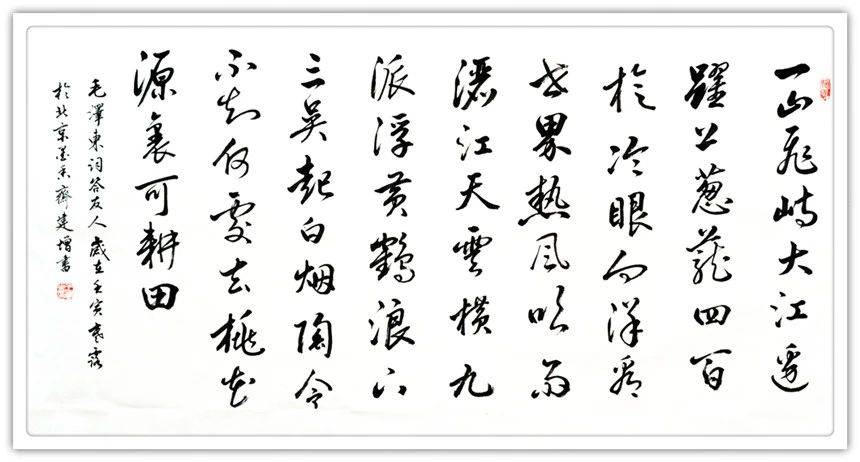 一山飛峙大江邊
躍上葱蘢四百
旋冷眼向洋看
世界熱風吹雨
灑江天雲横九
派浮黄鶴浪下
三吳起白烟陶令
不知何處去桃花
源裏可耕田
毛澤東詞答友人歲在壬寅寒露
於北京墨香齋建增書